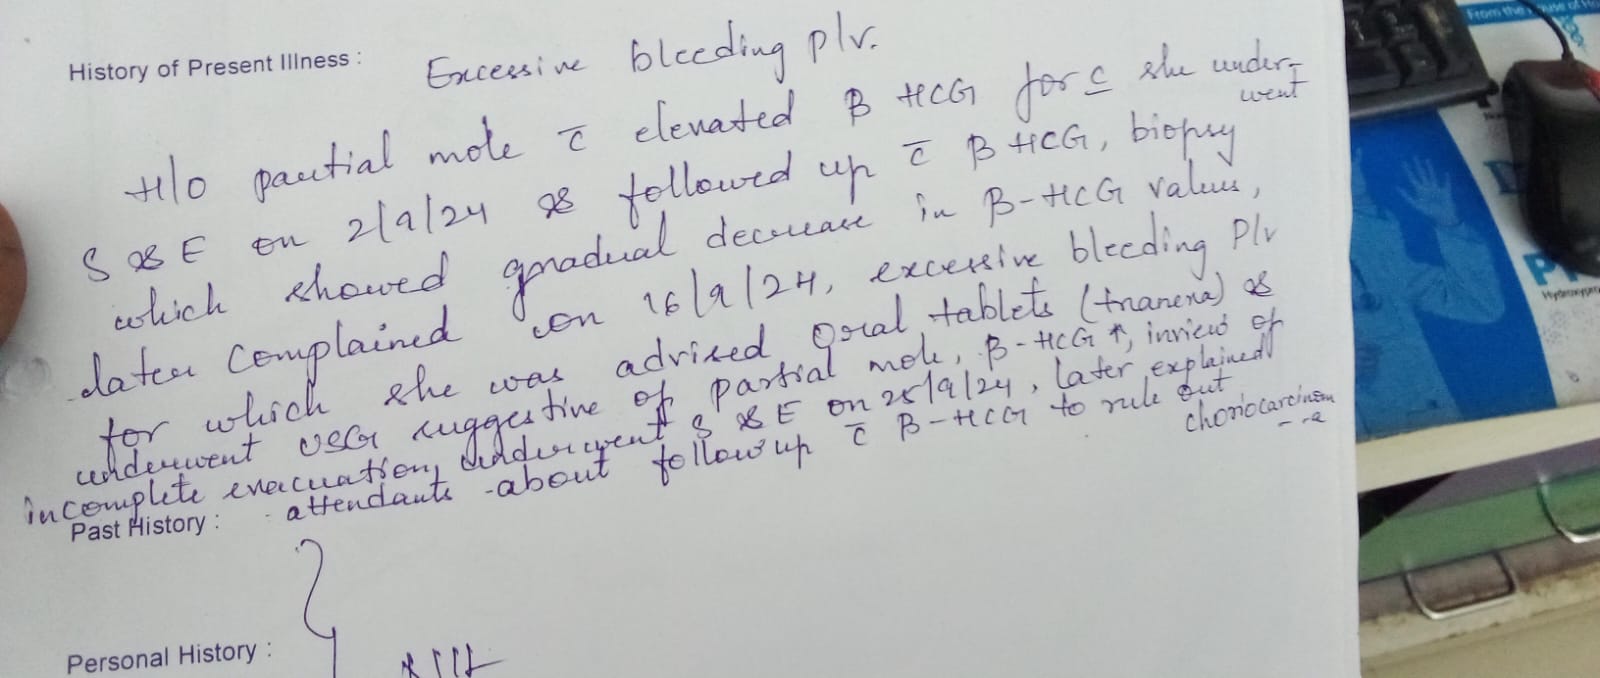 History of Present Illness : Excessive bleeding P/v.
H/o partial mole c̄ elevated β HCG for c̲ she underwent
S & E on 2/9/24 & followed up c̄ β HCG, biopsy
which showed gradual decrease in β-HCG values,
later complained on 16/9/24, excessive bleeding P/v
for which she was advised oral tablets (tranexa) &
underwent USG suggestive of partial mole, β-HCG ↑, inview of
incomplete evacuation, underwent S & E on 25/9/24, later explained
attendants about followup c̄ β-HCG to rule out choriocarcinoma
Past History :
Personal History : NIL
From the